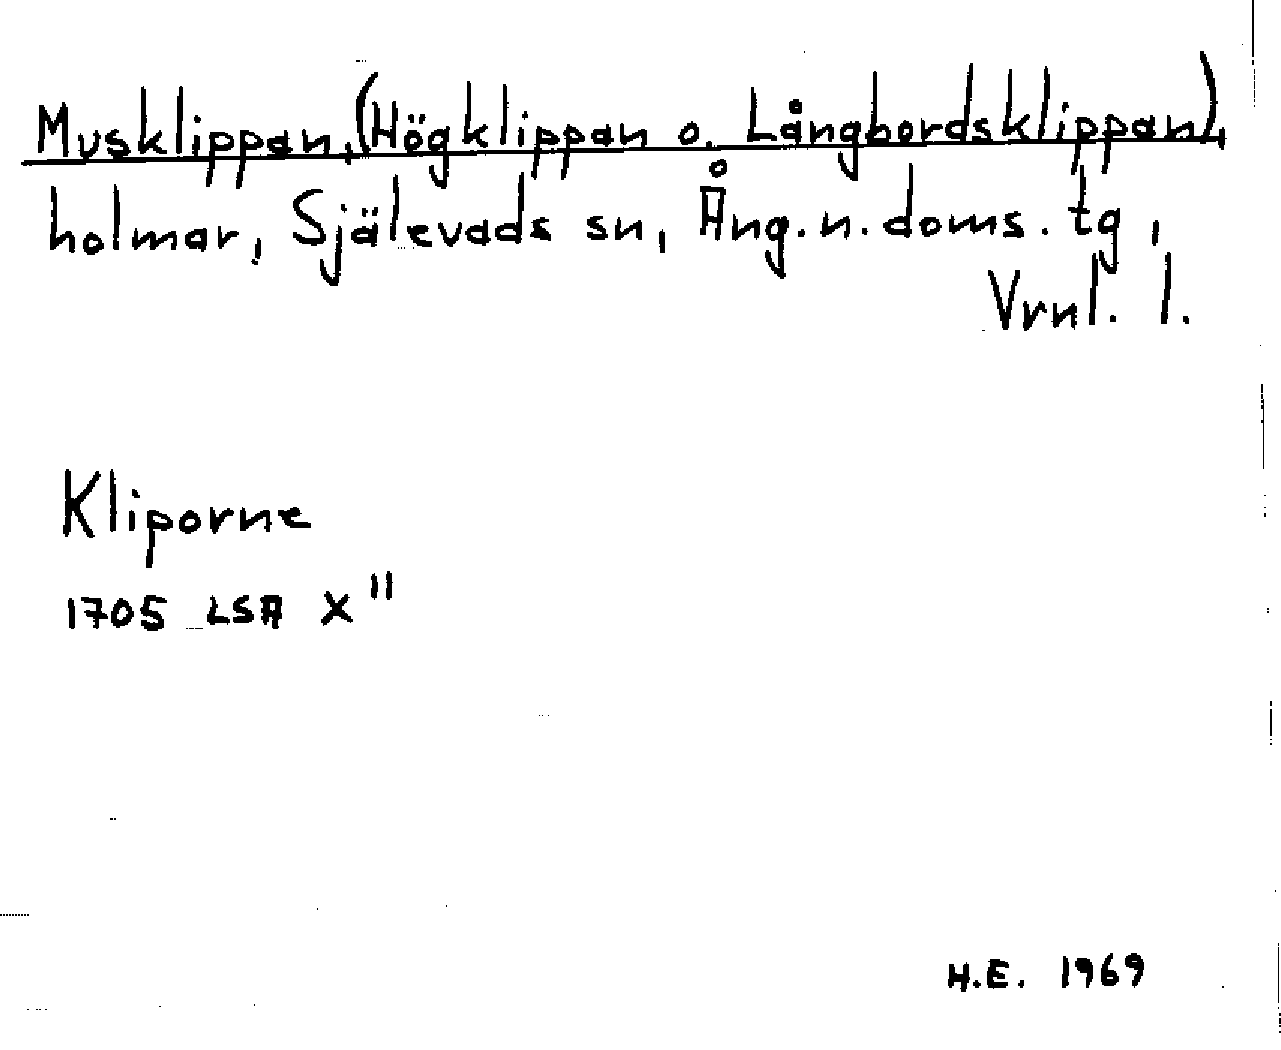 Musklippan, (Högklippan o. Långbordsklippan),
holmar, Själevads sn, Ång. n. doms. tg,
Vrnl. l.
Kliporne
1705 LSA X"
H.E. 1969